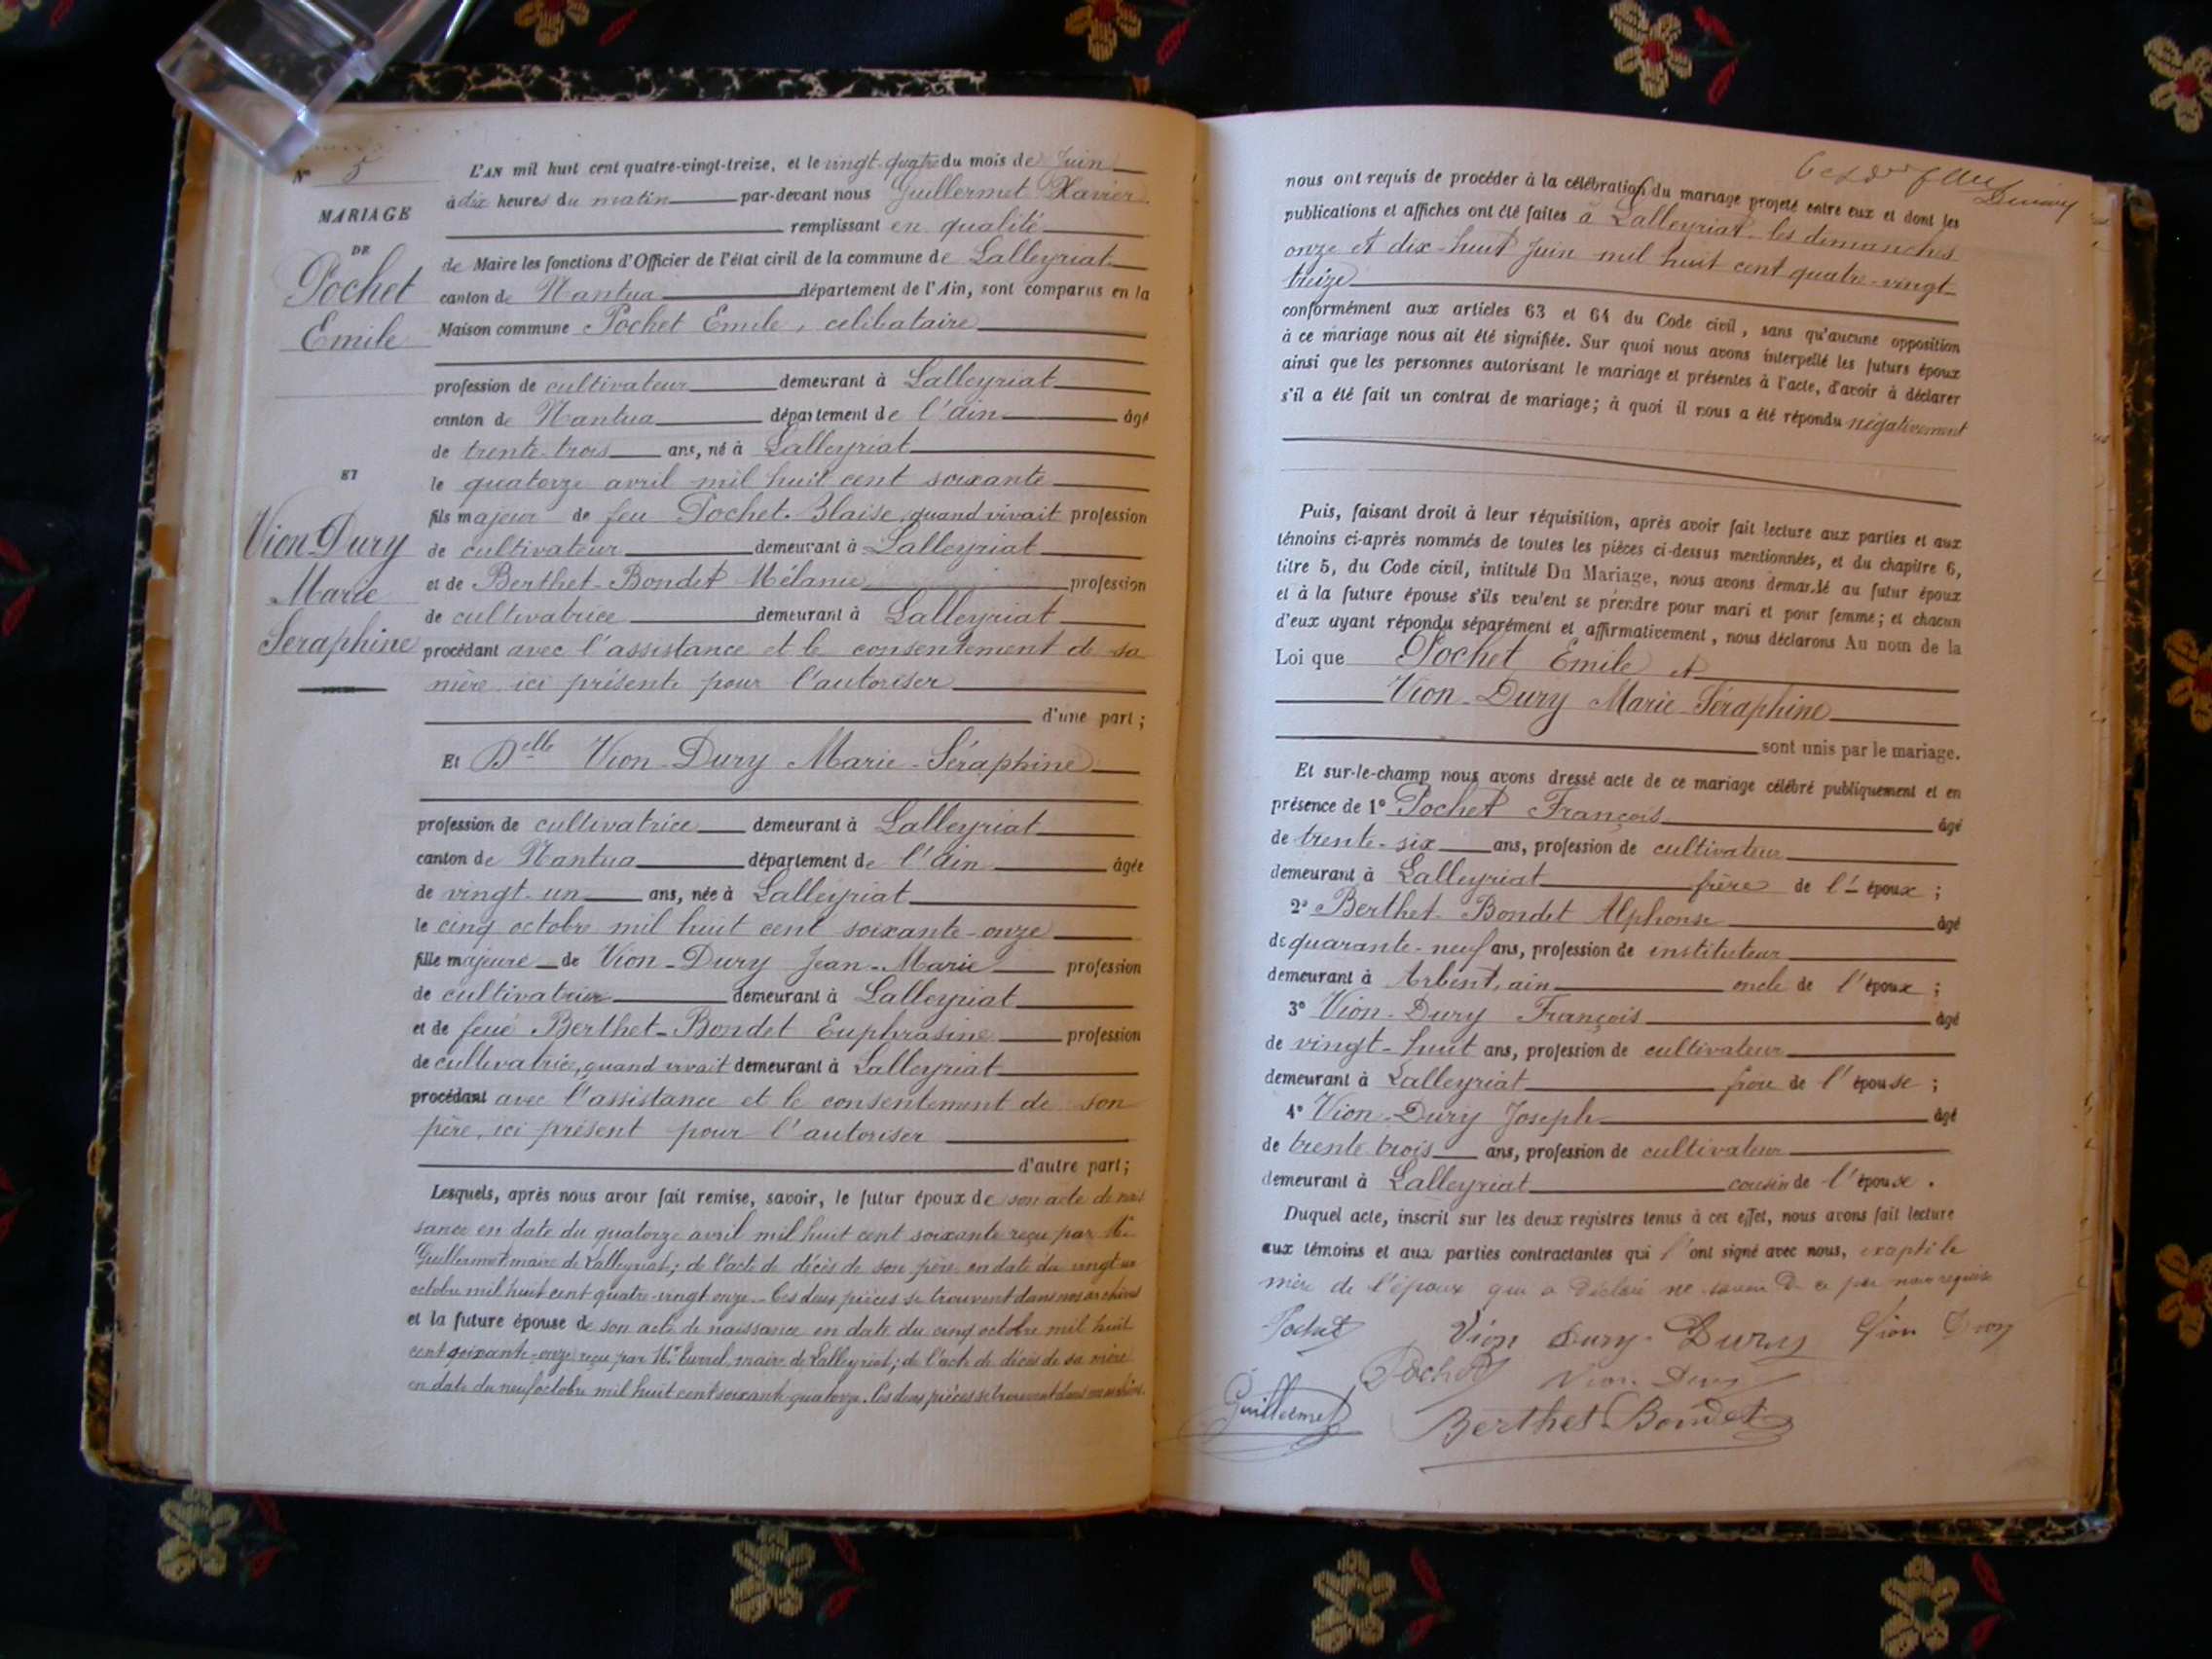 N° 5
MARIAGE
DE
Pochet
Emile
ET
Vion Dury
Marie
Seraphine
L'AN mil huit cent quatre-vingt-treize, et le vingt-quatre du mois de Juin
à dix heures du matin par-devant nous Guillermet Xavier
remplissant en qualité
de Maire les fonctions d'Officier de l'état civil de la commune de Lalleyriat
canton de Nantua département de l'Ain, sont comparus en la
Maison commune Pochet Emile, celibataire
profession de cultivateur demeurant à Lalleyriat
canton de Nantua département de l'ain âgé
de trente-trois ans, né à Lalleyriat
le quatorze avril mil huit cent soixante
fils majeur de feu Pochet Blaise, quand vivait profession
de cultivateur demeurant à Lalleyriat
et de Berthet-Bondet Mélanie profession
de cultivatrice demeurant à Lalleyriat
procédant avec l'assistance et le consentement de sa
mère ici présente pour l'autoriser
d'une part;
Et Delle Vion-Dury Marie-Séraphine
profession de cultivatrice demeurant à Lalleyriat
canton de Nantua département de l'ain âgée
de vingt-un ans, née à Lalleyriat
le cinq octobre mil huit cent soixante-onze
fille majeure de Vion-Dury Jean-Marie profession
de cultivateur demeurant à Lalleyriat
et de feue Berthet-Bondet Euphrasine profession
de cultivatrice, quand vivait demeurant à Lalleyriat
procédant avec l'assistance et le consentement de son
père, ici présent pour l'autoriser
d'autre part;
Lesquels, après nous avoir fait remise, savoir, le futur époux de son acte de nais
sance en date du quatorze avril mil huit cent soixante reçu par Mr
Guillermet maire de Lalleyriat; de l'acte de décès de son père en date du vingt-un
octobre mil huit cent quatre-vingt-onze. Ces deux pièces se trouvent dans nos archives
et la future épouse de son acte de naissance en date du cinq octobre mil huit
cent soixante-onze reçu par Mr maire de Lalleyriat; de l'acte de décès de sa mère
en date du neuf octobre mil huit cent soixante-quatorze. Ces deux pièces se trouvent dans nos archives.
nous ont requis de procéder à la célébration du mariage projeté entre eux et dont les
publications et affiches ont été faites à Lalleyriat les dimanches
onze et dix-huit Juin mil huit cent quatre-vingt-
treize
conformément aux articles 63 et 64 du Code civil, sans qu'aucune opposition
à ce mariage nous ait été signifiée. Sur quoi nous avons interpellé les futurs époux
ainsi que les personnes autorisant le mariage et présentes à l'acte, d'avoir à déclarer
s'il a été fait un contrat de mariage; à quoi il nous a été répondu négativement
Puis, faisant droit à leur réquisition, après avoir fait lecture aux parties et aux
témoins ci-après nommés de toutes les pièces ci-dessus mentionnées, et du chapitre 6,
titre 5, du Code civil, intitulé Du Mariage, nous avons demandé au futur époux
et à la future épouse s'ils veulent se prendre pour mari et pour femme; et chacun
d'eux ayant répondu séparément et affirmativement, nous déclarons Au nom de la
Loi que Pochet Emile et
Vion-Dury Marie-Séraphine
sont unis par le mariage.
Et sur-le-champ nous avons dressé acte de ce mariage célébré publiquement et en
présence de 1° Pochet François âgé
de trente-six ans, profession de cultivateur
demeurant à Lalleyriat frère de l'époux ;
2° Berthet-Bondet Alphonse âgé
de quarante-neuf ans, profession de instituteur
demeurant à Arbent, ain oncle de l'époux ;
3° Vion-Dury François âgé
de vingt-huit ans, profession de cultivateur
demeurant à Lalleyriat frère de l'épouse ;
4° Vion-Dury Joseph âgé
de trente trois ans, profession de cultivateur
demeurant à Lalleyriat cousin de l'épouse .
Duquel acte, inscrit sur les deux registres tenus à cet effet, nous avons fait lecture
aux témoins et aux parties contractantes qui l'ont signé avec nous, excepté la
mère de l'époux qui a déclaré ne savoir de ce par nous requise
Pochet Vion Dury Dury Vion Dury
Pochet Vion Dury
Guillermet Berthet-Bondet